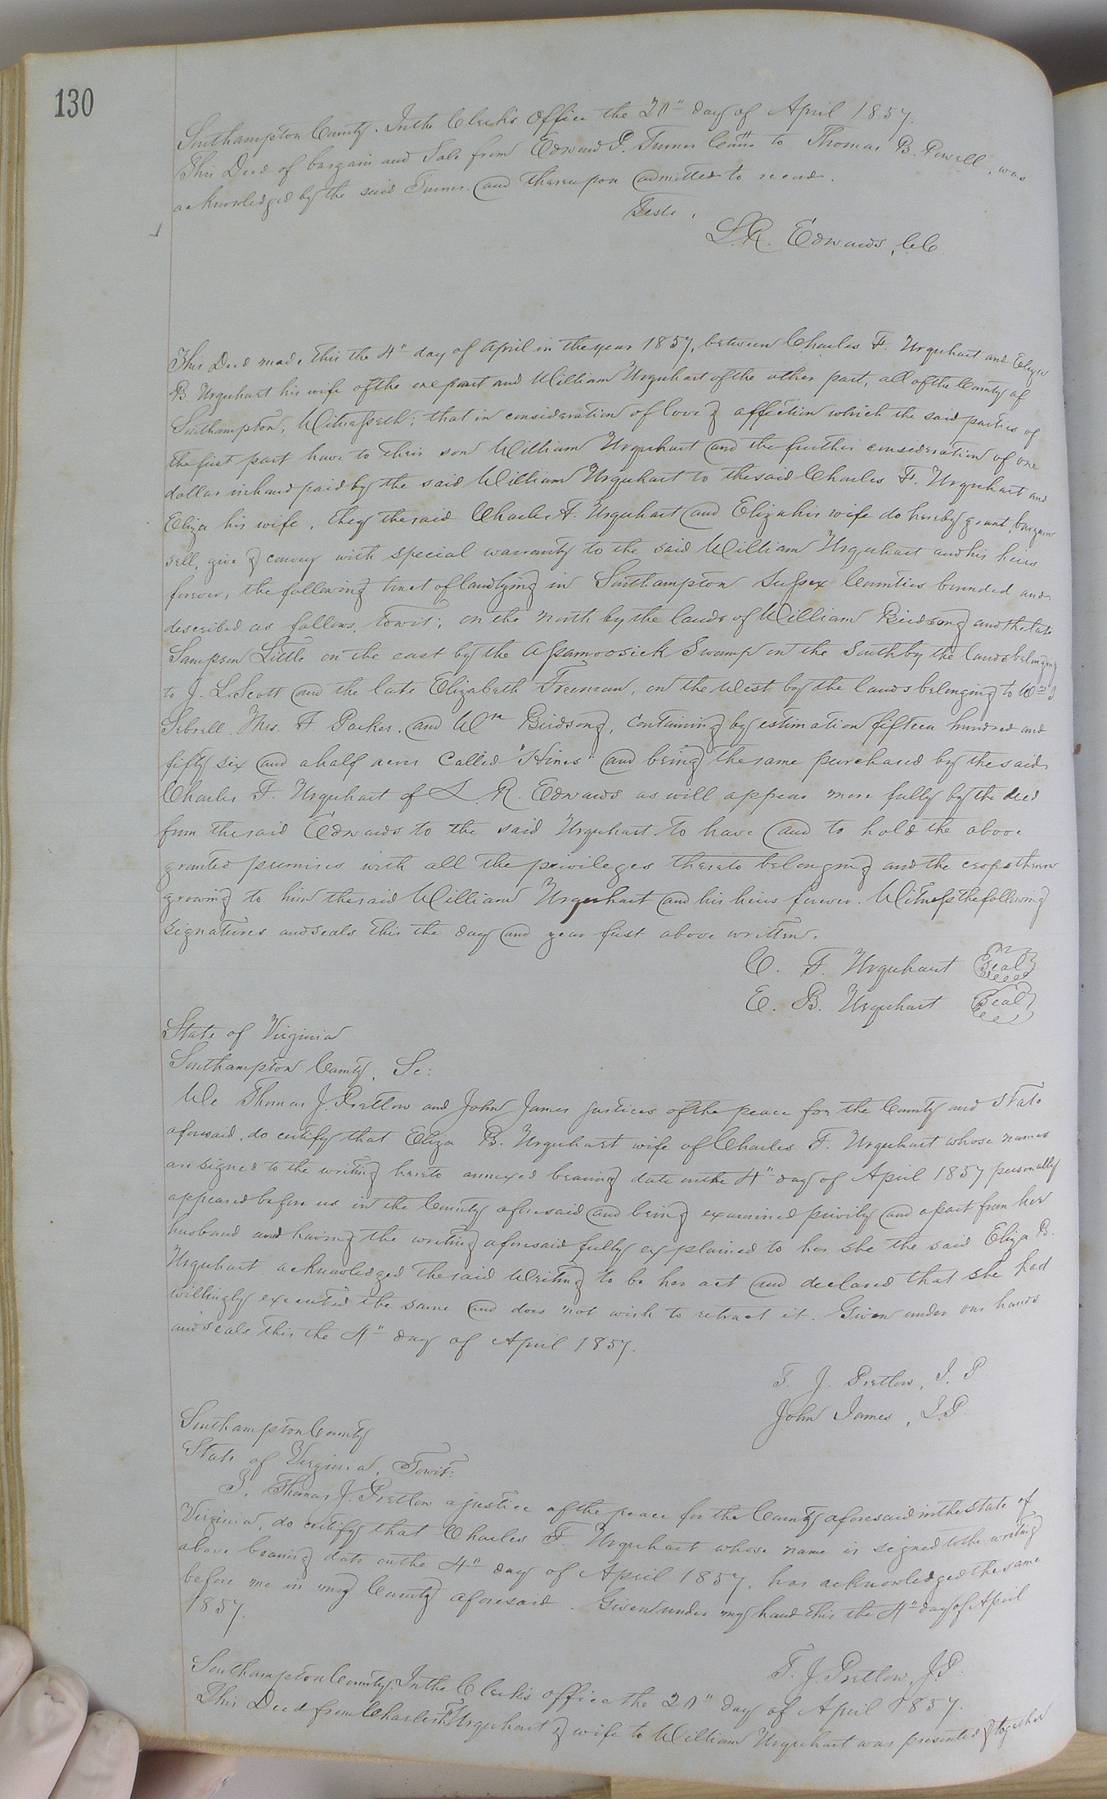 130
Southampton County. In the Clerk's Office the 20" day of April 1857.
This Deed of bargain and Sale from Edward P. Turner to Thomas B. Powell, was
acknowledged by the said Turner and thereupon admitted to record.
Teste,
L. R. Edwards, C.C.
This Deed made this the 4" day of April in the year 1857, between Charles F. Urquhart and Eliza
B Urquhart his wife of the one part and William Urquhart of the other part, all of the County of
Southampton, Witnesseth; that in consideration of love & affection which the said parties of
the first part have to their son William Urquhart and the further consideration of one
dollar in hand paid by the said William Urquhart to the said Charles F. Urquhart and
Eliza his wife, they the said Charles F. Urquhart and Eliza his wife do hereby grant, bargain
sell, give & convey with special warranty to the said William Urquhart and his heirs
forever, the following tract of land lying in Southampton Sussex Counties bounded and
described as follows, towit; on the north by the lands of William Birdsong and the late
Sampson Little on the east by the Assamoosick Swamp on the South by the lands belonging
to J. L. Scott and the late Elizabeth Freeman, on the West by the lands belonging to Wm
Sebrell Thos. F Parker, and Wm Birdsong, containing by estimation fifteen hundred and
fifty six and a half acres called "Hines" and being the same purchased by the said
Charles F. Urquhart of L. R. Edwards as will appear more fully by the deed
from the said Edwards to the said Urquhart. To have and to hold the above
granted premises with all the privileges thereto belonging and the crops thereon
growing to him the said William Urquhart and his heirs forever. Witness the following
signatures and seals this the day and year first above written.
C. F. Urquhart Seal
E. B. Urquhart Seal
State of Virginia
Southampton County, Sc:
We Thomas J. Pretlow and John James justices of the peace for the County and State
aforesaid, do certify that Eliza B. Urquhart wife of Charles F. Urquhart whose names
are signed to the writing hereto annexed bearing date on the 4" day of April 1857 personally
appeared before us in the County aforesaid and being examined privily and apart from her
husband and having the writing aforesaid fully explained to her she the said Eliza B.
Urquhart acknowledged the said writing to be her act and declared that she had
willingly executed the same and does not wish to retract it. Given under our hands
and seals this the 4" day of April 1857.
T. J. Pretlow, J.P
John James, J.P.
Southampton County
State of Virginia, Towit:
I, Thomas J. Pretlow a justice of the peace for the County aforesaid in the State of
Virginia, do certify that Charles F. Urquhart whose name is signed to the writing
above bearing date on the 4" day of April 1857, has acknowledged the same
before me in my County aforesaid. Given under my hand this the 4" day of April
1857.
T. J. Pretlow, J.P.
Southampton County. In the Clerk's office the 20" day of April 1857.
This Deed from Charles F Urquhart & wife to William Urquhart was presented & together